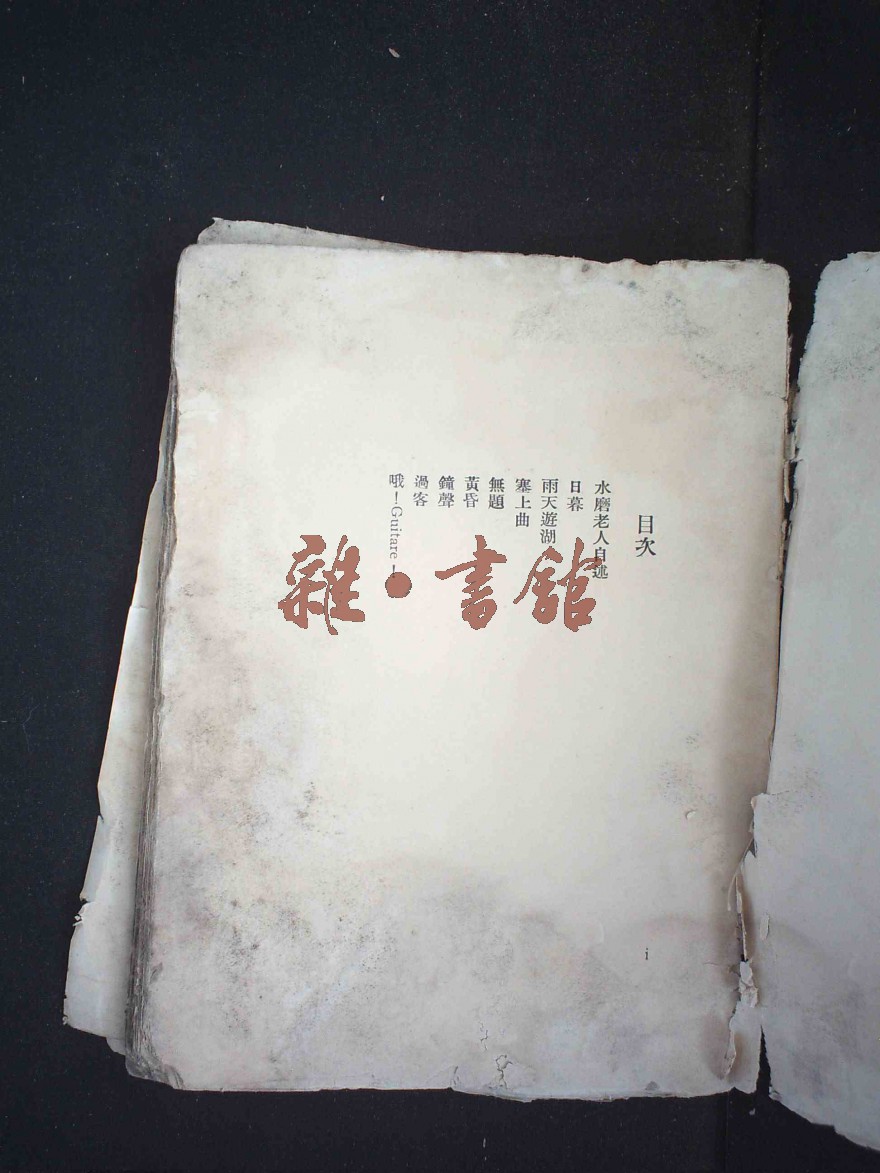 目次
水磨老人自述
日暮
雨天遊湖
塞上曲
無題
黃昏
鐘聲
過客
哦！Guitare！
i
雜·書館